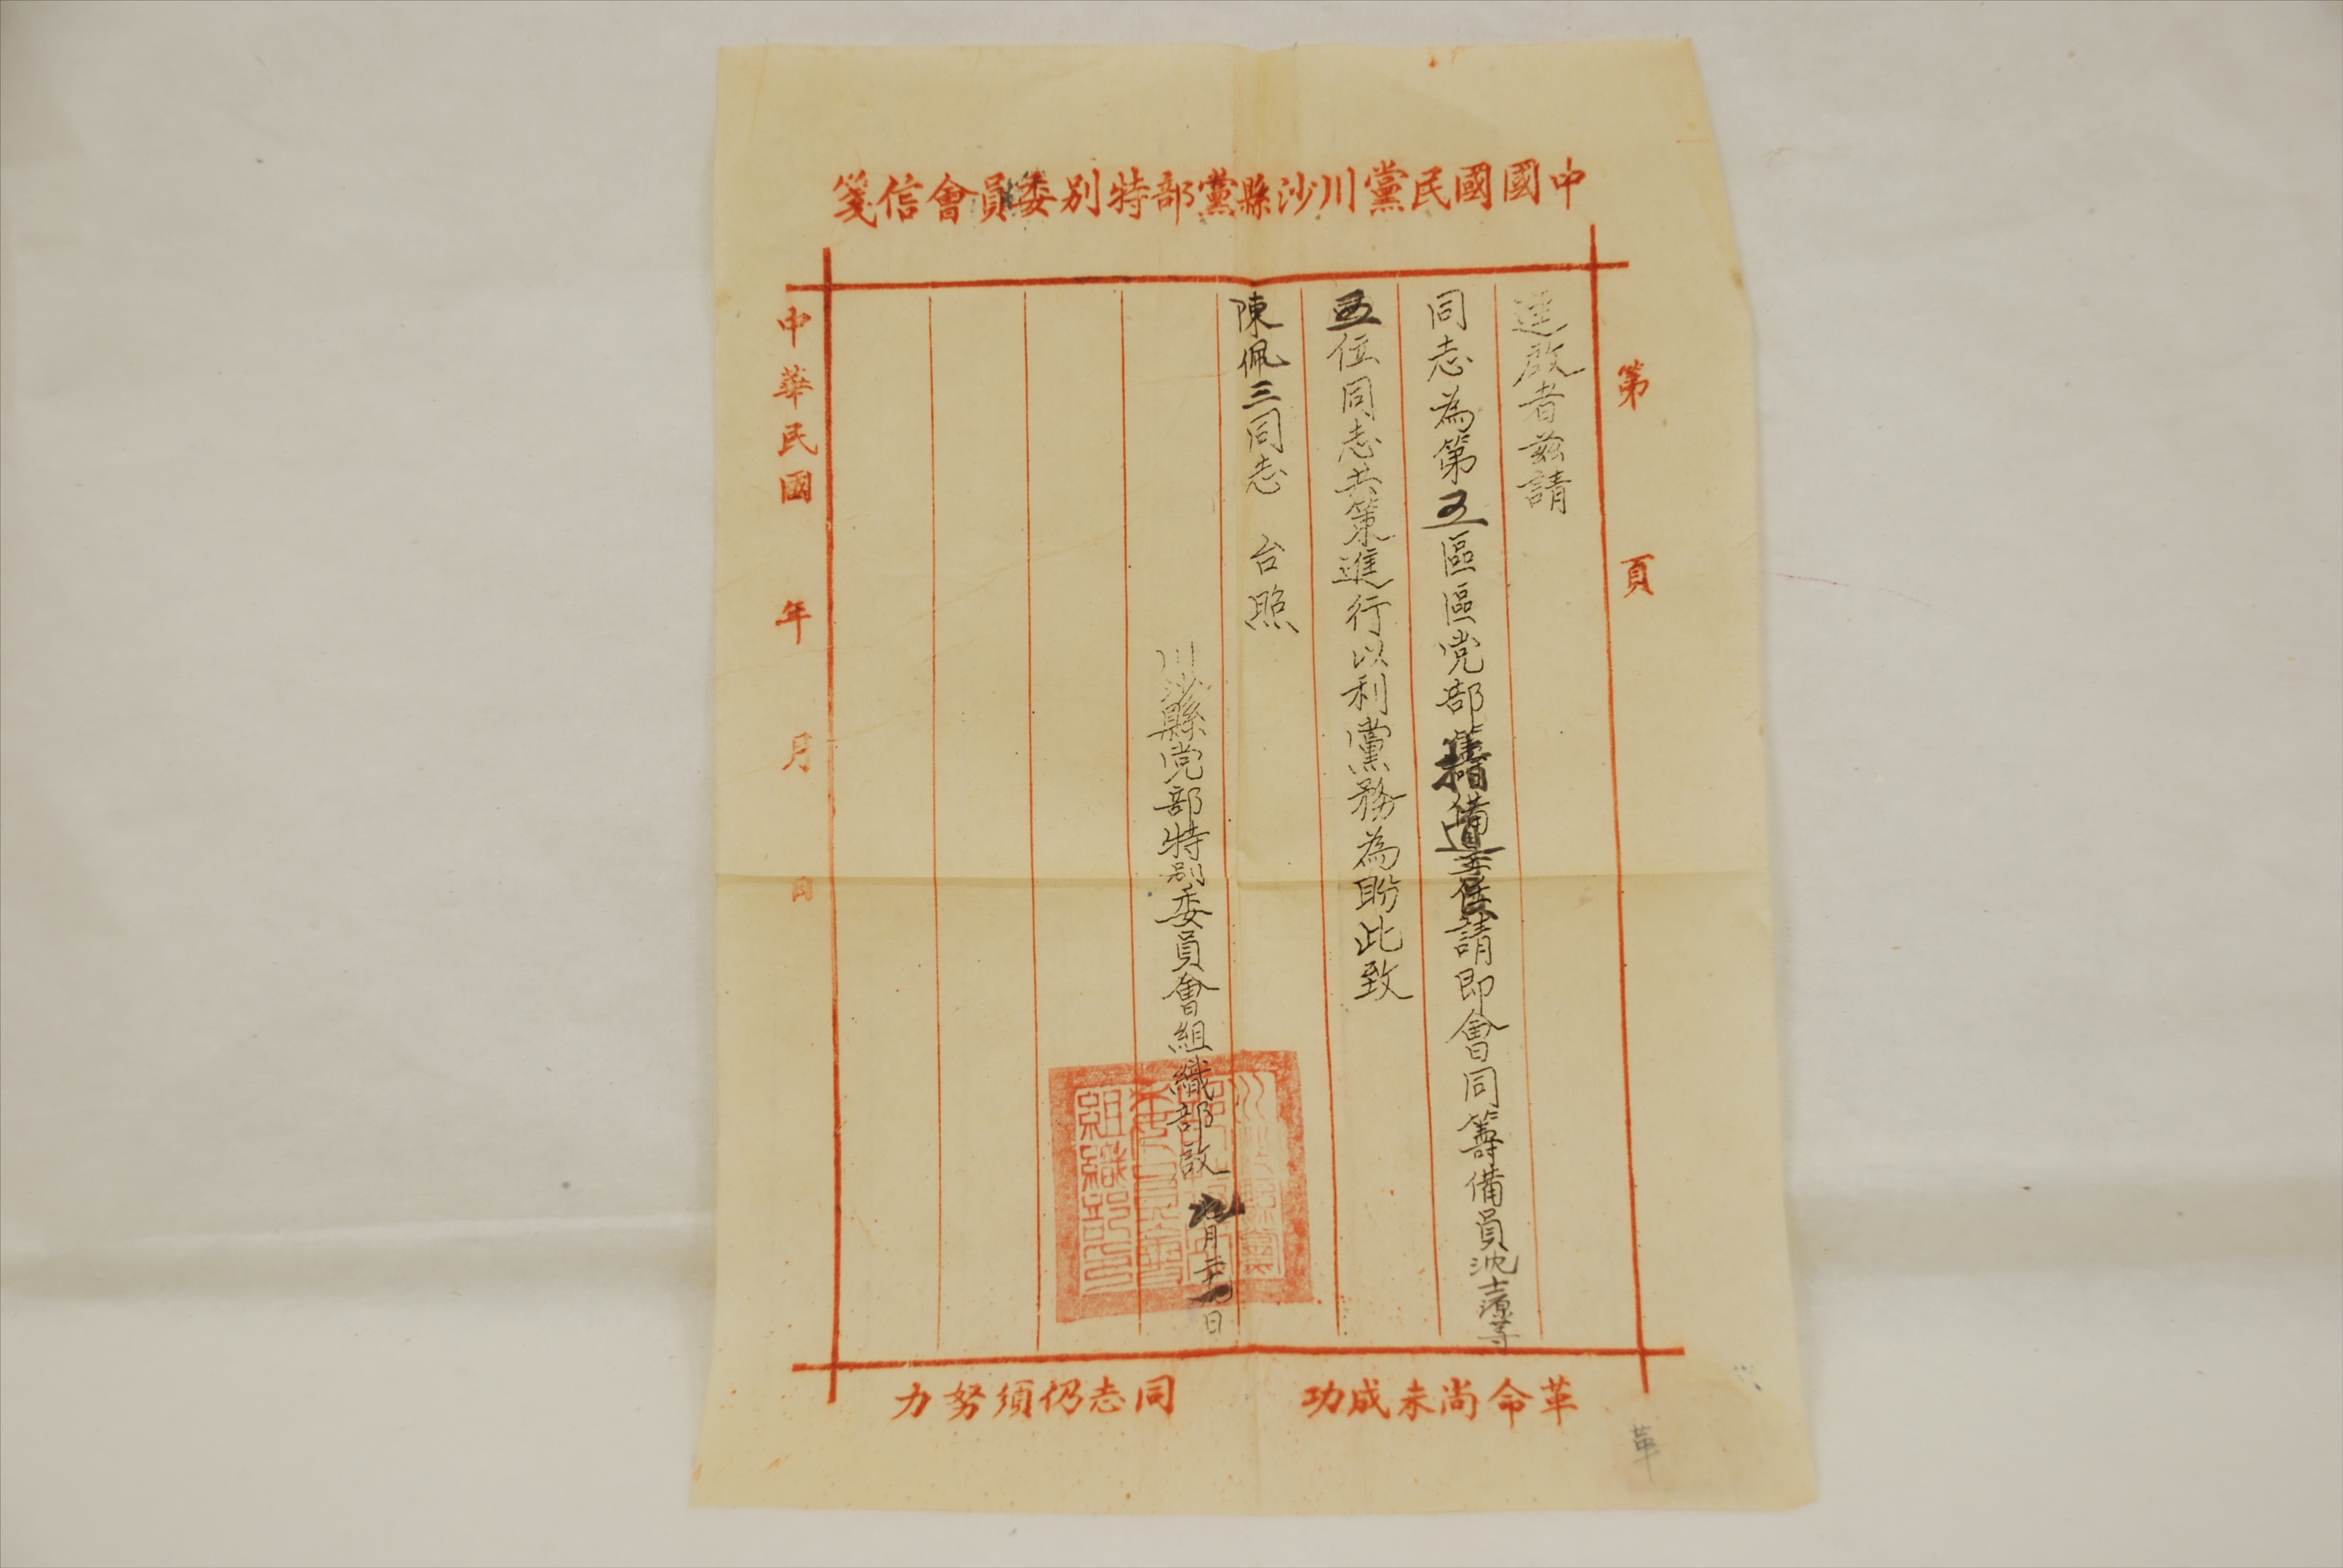 中國國民黨川沙縣黨部特別委員會信箋
第 頁
逕啟者茲請
同志為第五區區党部備請即會同籌備員沈士等
五位同志共策進行以利黨務為盼此致
陳佩三同志 台照
川沙縣党部特別委員會組織部啟 月日
中華民國 年 月 日
革命尚未成功 同志仍須努力
組織部印
革